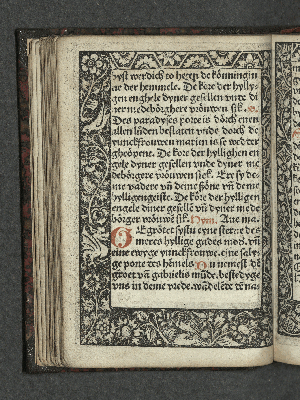 ihyst werdich to heren de könningin
ne der hemmele. De kore der hylly-
gen enghele dyner gesellen vnde di
ner medebörghere vröuwen sik.
Des paradyses porte is dörch enen
allen lüden beslaten vnde dorch de
yunckfrouwen marien is se wedder
gheöpene. De kore der hyllighen en
gele dyner gesellen vnde dyner me
debörgere vröuwen siek. Ere sy de-
me vadere vñ deme söne vñ deme
hylligengeiste. De köre der hylligen
engele diner gesellē vñ dyner mede
börger vröuwē sik. Hym. Aue ma.
GEgrötet systu eyn sterne des
meres hyllige gades mod. vñ
eine ewyge yunckfrouwe. eine saly-
ge porte des hēmels Du nemest dē
groet vñ gabrielis mūde. bestedyge
vns in deme vrede. wādelēde dē na-